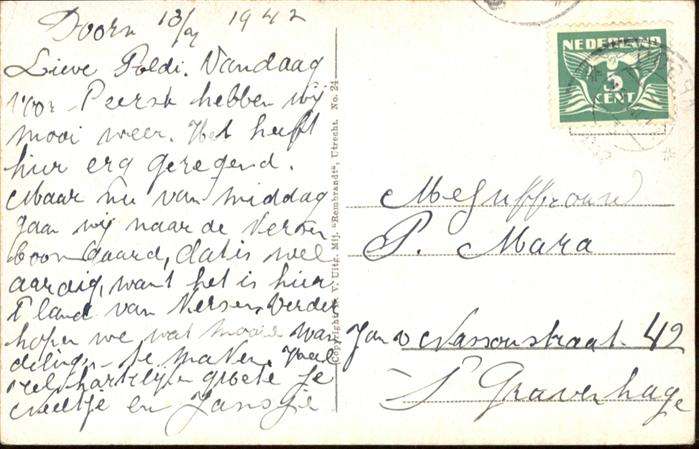 Doorn 13/7 1942
Lieve Poldi. Vandaag
voor Peerst hebben wij
mooi weer. Het heeft
hier erg geregend.
Maar nu van middag
gaan wij naar de Kersen
boongaard, dat is wel
aardig, want het is hier
't land van Kersen. Verder
hopen we wat mooie wan
deling te maken. Veel
hartelijke groete Je
en Jansje
Copyright N. V. Uitg. Mij. "Rembrandt", Utrecht. No. 24
NEDERLAND
5
CENT
Mejuffrouw
P. Mara
Jan v Nassoustraat 42
S Gravenhage